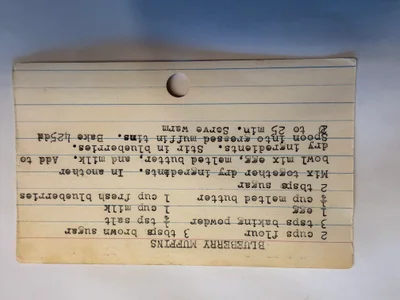 BLUEBERRY MUFFINS
2 cups flour 3 tbsps brown sugar
3 tsps baking powder tsp salt
1 egg 1 cup milk
cup melted butter 1 cup fresh blueberries
2 tbsps sugar
Mix together dry ingredients. In another
bowl mix egg, melted butter, and milk. Add to
dry ingredients. Stir in blueberries.
Spoon into greased muffin tins. Bake
to 25 min. Serve warm